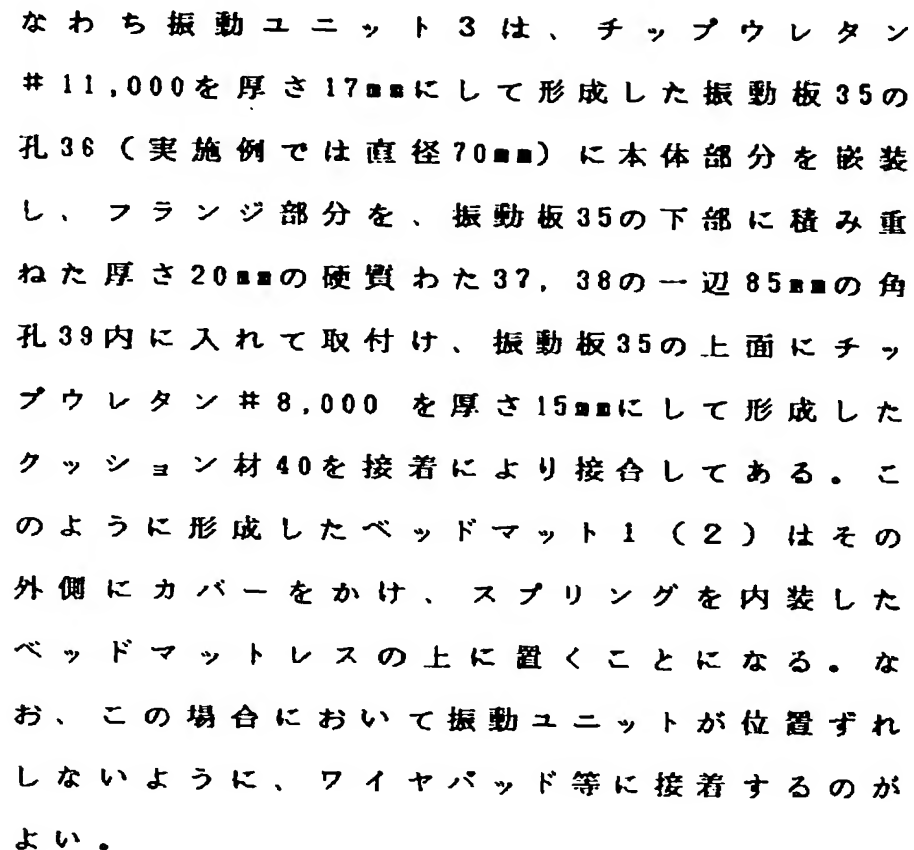 なわち振動ユニット3は、チップウレタン
#11,000を厚さ17mmにして形成した振動板35の
孔36(実施例では直径70mm)に本体部分を嵌装
し、フランジ部分を、振動板35の下部に積み重
ねた厚さ20mmの硬質わた37,38の一辺85mmの角
孔39内に入れて取付け、振動板35の上面にチッ
プウレタン#8,000 を厚さ15mmにして形成した
クッション材40を接着により接合してある。こ
のように形成したベッドマット1(2)はその
外側にカバーをかけ、スプリングを内装した
ベッドマットレスの上に置くことになる。な
お、この場合において振動ユニットが位置ずれ
しないように、ワイヤパッド等に接着するのが
よい。